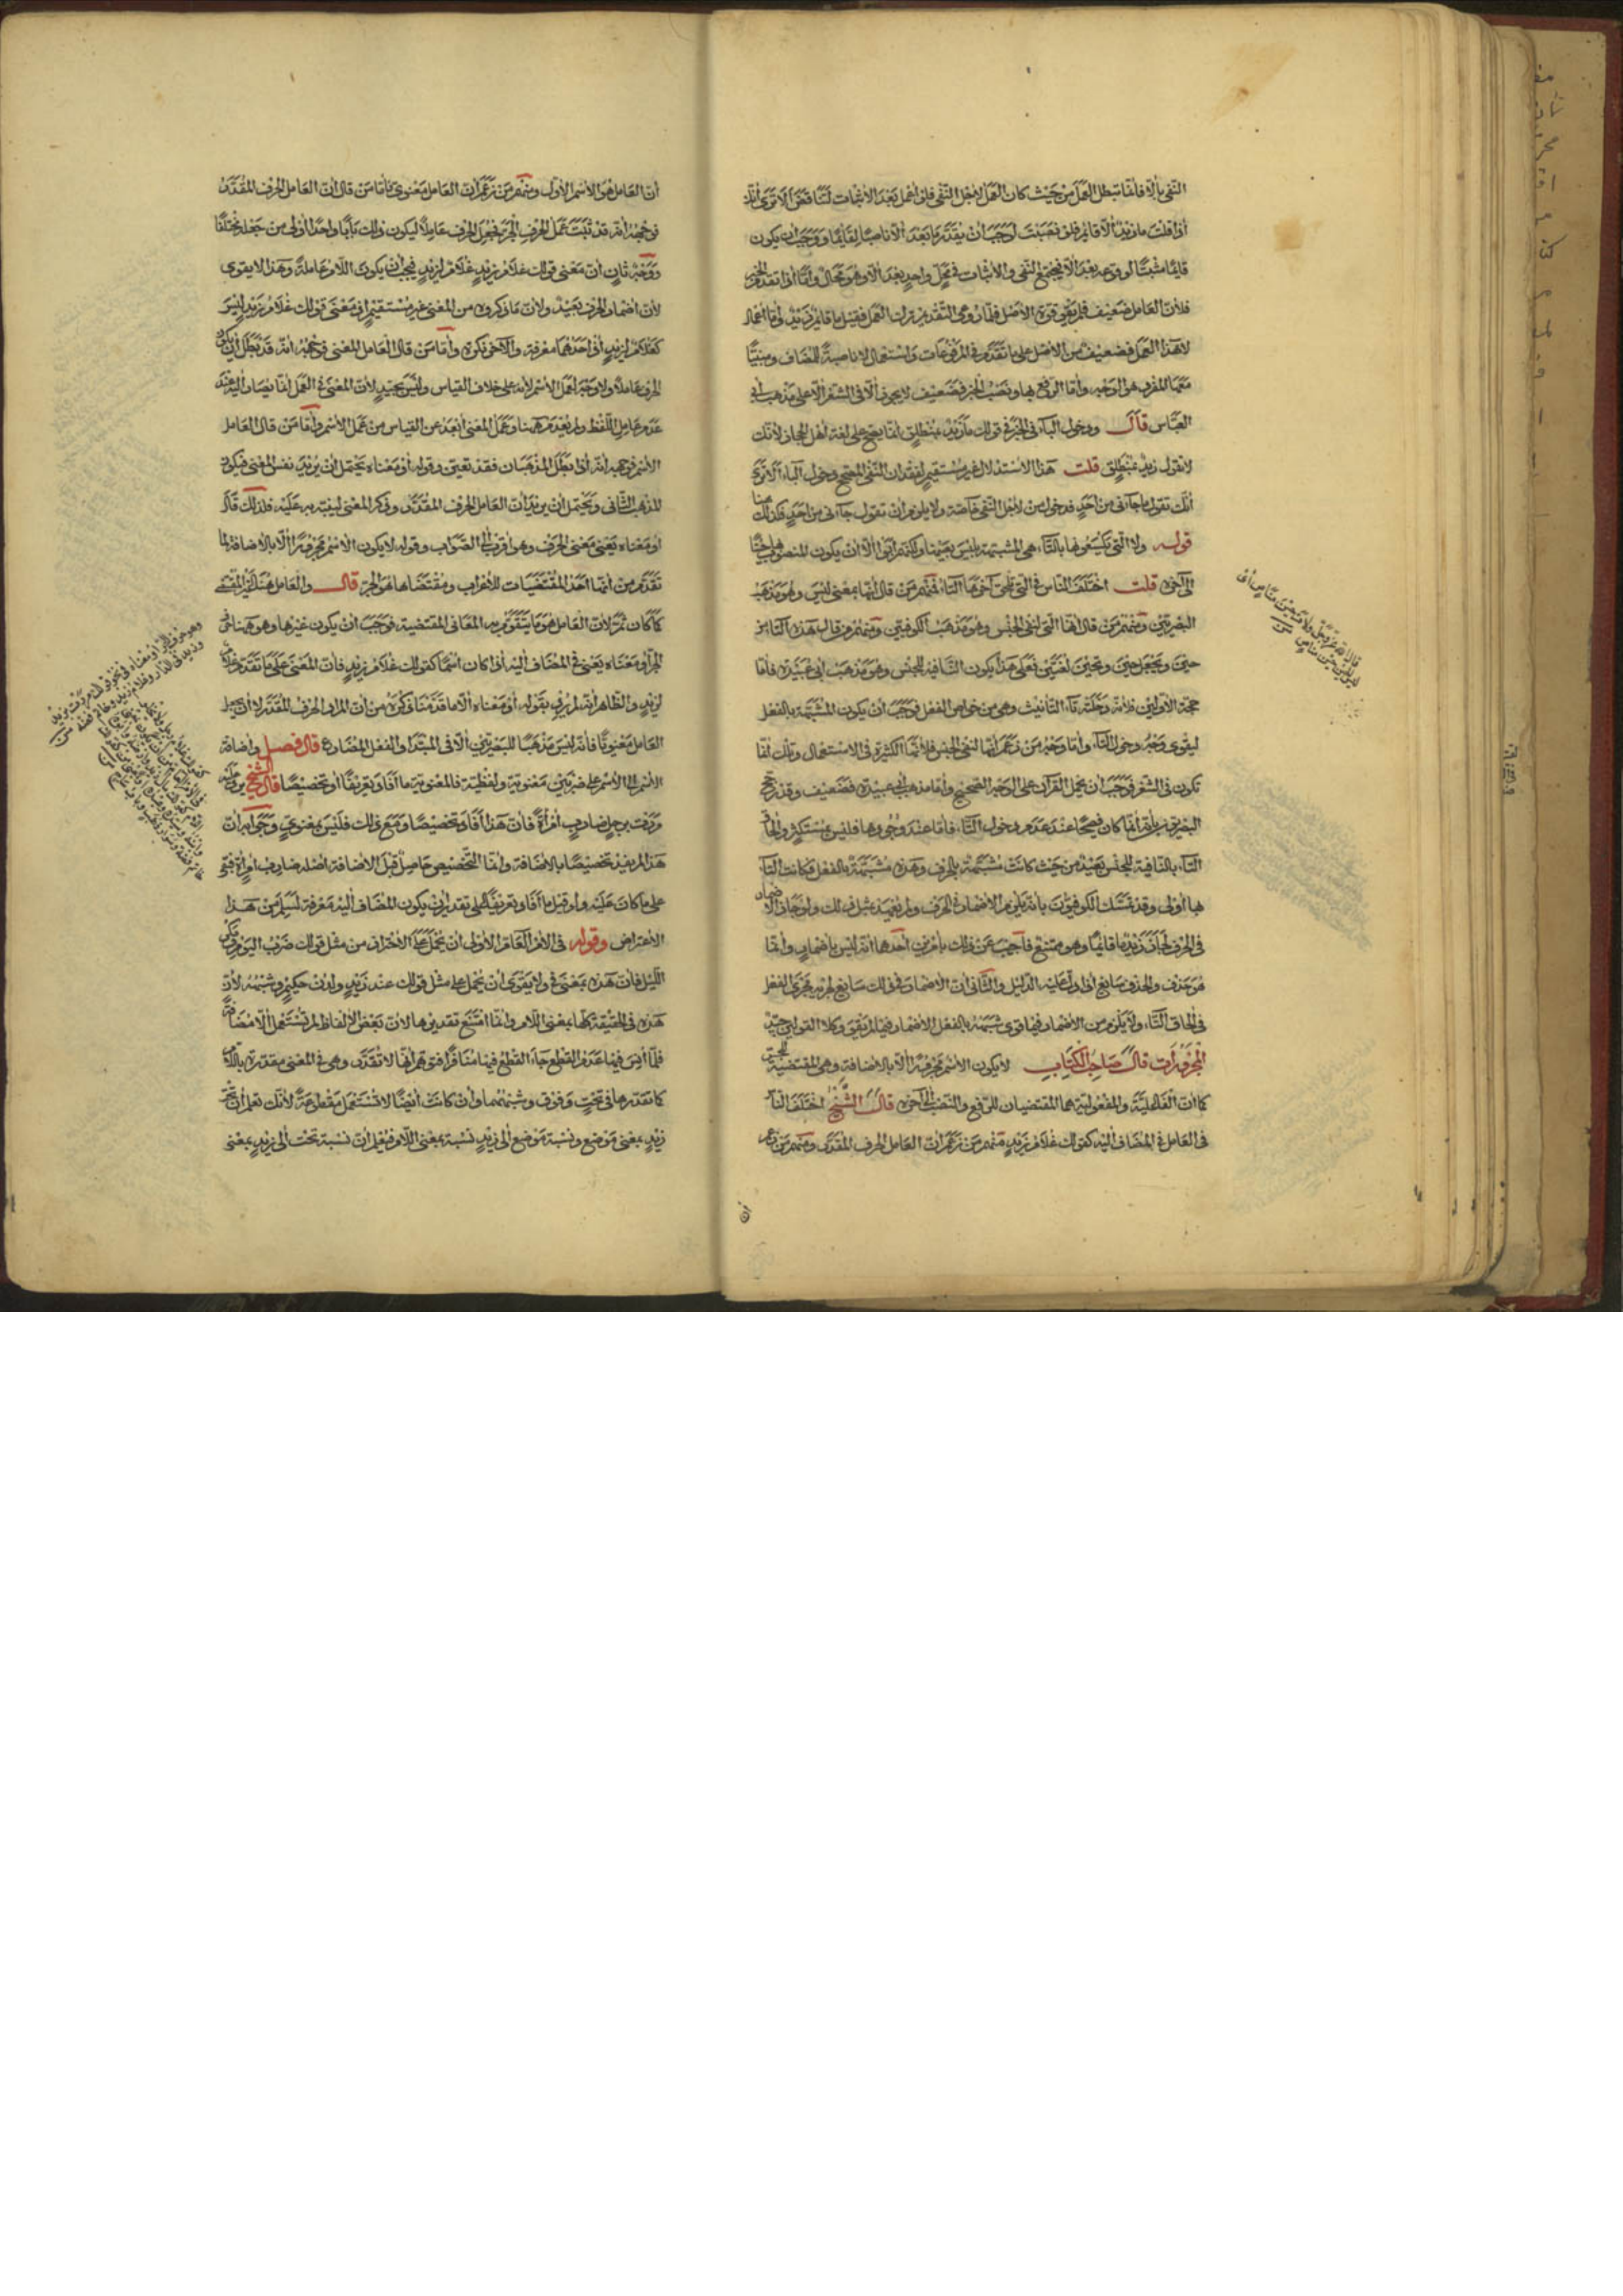 النفي بإلا فإنما بطل العمل من حيث كان العمل لأجل النفي فلو أعمل بعد الإثبات لتناقض ألا ترى أنك
إذا قلت ما زيد إلا قائم فلو نصبت لوجب أن يقدر ما بعد إلا ناصبا لقائما ووجب أن يكون
قائما مثبتا لوقوعه بعد إلا فيجتمع النفي والإثبات في محل واحد بعد إلا وهو محال وأما إذا تقدم الخبر
فلأن العامل ضعيف فلم يقو قوة الأصل في التقديم ترك العمل فقيل ما قائم زيد وأما إعمال
لا هذا العمل فضعيف من الأصل على ما تقدم في المرفوعات واستعمال لا ناصبة للمضاف ومبنيا
معها المفرد هو الوجه وأما الرفع بها ونصب الخبر فضعيف لا يجوز إلا في الشعر إلا على مذهب أبي
العباس قال ودخول الباء في الخبر في قولك ما زيد بمنطلق إنما يصح على لغة أهل الحجاز لأنك
لا تقول زيد بمنطلق قلت هذا الاستدلال غير مستقيم لفقدان النفي المصحح دخول الباء ألا ترى
أنك تقول ما جاءني من أحد فدخول من لأجل النفي خاصة ولا يلزم أن تقول جاءني من أحد فكذلك هنا
قوله ولا التي يكسعونها بالتاء هي المشبهة بليس بعينها ولكنهم أبوا إلا أن يكون المنصوب بها حينا
إلى آخره قلت اختلف الناس في التي تلحق آخرها التاء فمنهم من قال إنها بمعنى ليس وهو مذهب
البصريين ومنهم من قال إنها التي لنفي الجنس وهو مذهب الكوفيين ومنهم من قال هذه التاء من
حين ويجعل حين وتحين لغتين فعلى هذا يكون النافية للجنس وهو مذهب أبي عبيدة فأما
حجة الأولين فلأنه دخلته تاء التأنيث وهي من خواص الفعل فوجب أن يكون المشبهة بالفعل
ليقوى وجه دخول التاء وأما وجه من زعم أنها لنفي الجنس فلأنها الكثيرة في الاستعمال وتلك إنما
تكون في الشعر فوجب أن يحمل القرآن على الوجه الصحيح وأما مذهب أبي عبيدة فضعيف وقد رجح
البصريون بأنه إنما كان فصيحا عند عدم دخول التاء فأما عند وجودها فليس بمستكثر وإلحاق
التاء بالنافية للجنس بعيد من حيث كانت مشبهة بالحرف وهذه مشبهة بالفعل فكانت التاء
بها أولى وقد تمسك الكوفيون بأنه يلزم الإضمار في الحرف ولم يعهد مثل ذلك ولو جاز الإضمار
في الحرف لجاز زيد ما قائما وهو ممتنع فأجيب عن ذلك بأمرين أحدهما أنه ليس بإضمار وإنما
هو حذف والحذف سائغ إذا دل عليه الدليل والثاني أن الإضمار في ذلك سائغ لجريه مجرى الفعل
في إلحاق التاء ولا يلزم من الإضمار فيما قوي شبهه بالفعل الإضمار فيما لم يقو وكلا القولين جيد
المجرورات قال صاحب الكتاب لا يكون الاسم مجرورا إلا بالإضافة وهي المقتضية للجر
كما أن الفاعلية والمفعولية هما المقتضيان للرفع والنصب إلى آخره قال الشيخ اختلف الناس
في العامل في المضاف إليه كقولك غلام زيد منهم من زعم أن العامل الحرف المقدر ومنهم من زعم
أن
أن العامل هو الاسم الأول ومنهم من زعم أن العامل معنوي فأما من قال إن العامل الحرف المقدر
فوجهه أنه قد ثبت عمل الحرف الجر فجعل الحرف عاملا ليكون ذلك بابا واحدا أولى من جعله مختلفا
ووجه ثان أن معنى قولك غلام زيد غلام لزيد فيجب أن يكون اللام عاملة وهذا لا يقوى
لأن إضمار الحرف بعيد ولأن ما ذكروه من المعنى غير مستقيم إذ معنى قولك غلام زيد ليس
كغلام لزيد إذ أحدهما معرفة والآخر نكرة وأما من قال العامل المعنى فوجهه أنه قد بطل أن يكون
الحرف عاملا ولا وجه لعمل الاسم لأنه على خلاف القياس وليس بجيد لأن المعنى في العمل إنما يصار إليه عند
عدم عامل اللفظ ولم يعدم ههنا وعمل المعنى أبعد عن القياس من عمل الاسم وأما من قال العامل
الاسم فوجهه أنه إذا بطل المذهبان فقد تعين وقوله أو معناه يحتمل أن يريد نفس المعنى فيكون
المذهب الثاني ويحتمل أن يريد أن العامل الحرف المقدر وذكر المعنى لينبه به عليه فلذلك قال
أو معناه يعني معنى الحرف وهو أقرب إلى الصواب وقوله لا يكون الاسم مجرورا إلا بالإضافة لما
تقدم من أنها أحد المقتضيات للإعراب ومقتضاها هو الجر قال والعامل هنا غير المقتضي
كما كان ثم لأن العامل هو ما يتقوم به المعاني المقتضية فوجب أن يكون غيرها وهو ههنا حرف
الجر أو معناه يعني في المضاف إليه إذا كان اسما كقولك غلام زيد فإن المعنى على ما تقدم غلام
لزيد والظاهر أنه لم يرد بقوله أو معناه إلا ما قدمنا ذكره من أن المراد الحرف المقدر لا أن يجعل
العامل معنويا فإنه ليس مذهبا للبصريين إلا في المبتدأ والفعل المضارع قال فصل وإضافة
الاسم إلى الاسم على ضربين معنوية ولفظية فالمعنوية ما أفاد تعريفا أو تخصيصا قال الشيخ يرد عليه
مررت برجل ضارب امرأة فإن هذا أفاد تخصيصا ومع ذلك فليس بمعنوي وجوابه أن
هذا لم يفد تخصيصا بالإضافة وإنما التخصيص حاصل قبل الإضافة أصله ضارب امرأة فبقي
على ما كان عليه ولو قيل ما أفاد تعريفا على تقدير أن يكون المضاف إليه معرفة لسلم من هذا
الاعتراض وقوله في الأمر العام الأولى أن يحمل على الاحتراز من مثل قولك ضرب اليوم ومكر
الليل فإن هذه بمعنى في ولا يقوى أن يحمل على مثل قولك عند زيد ولدن حكيم وشبهه لأن
هذه في الحقيقة كلها بمعنى اللام وإنما امتنع تقديرها لأن بعض الألفاظ لم تستعمل إلا مضافة
فلما أنس فيها عدم القطع جاء القطع فيها منافرا فتوهم أنها لا تقدر وهي في المعنى مقدرة باللام
كما تقدرها في تحت وفوق وشبههما وإن كانت أيضا لا تستعمل مقطوعة لأنك تعلم أن تحت
زيد بمعنى موضع ونسبة موضع إلى زيد نسبة بمعنى اللام فيعلم أن نسبة تحت إلى زيد بمعنى